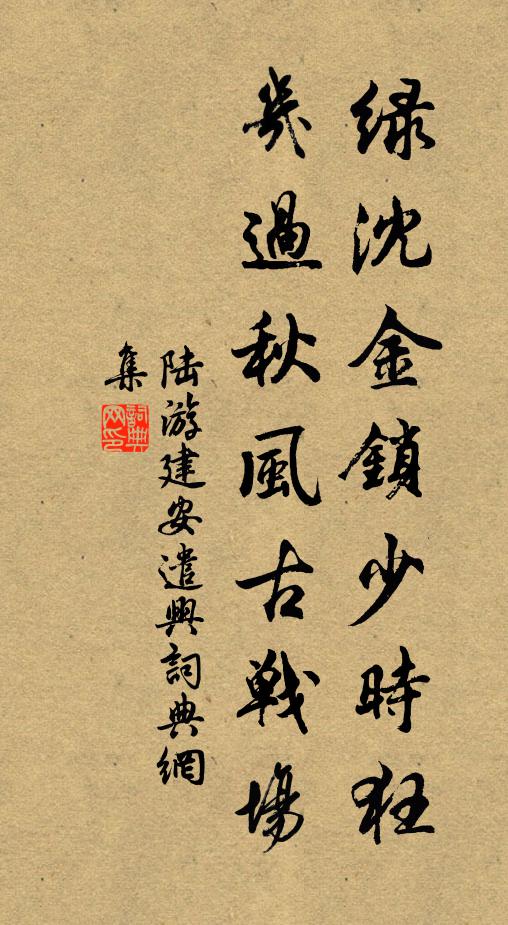 绿沈金鎖少時狂
幾過秋風古戰場
陆游建安遣興詞典網
集
詞典网印